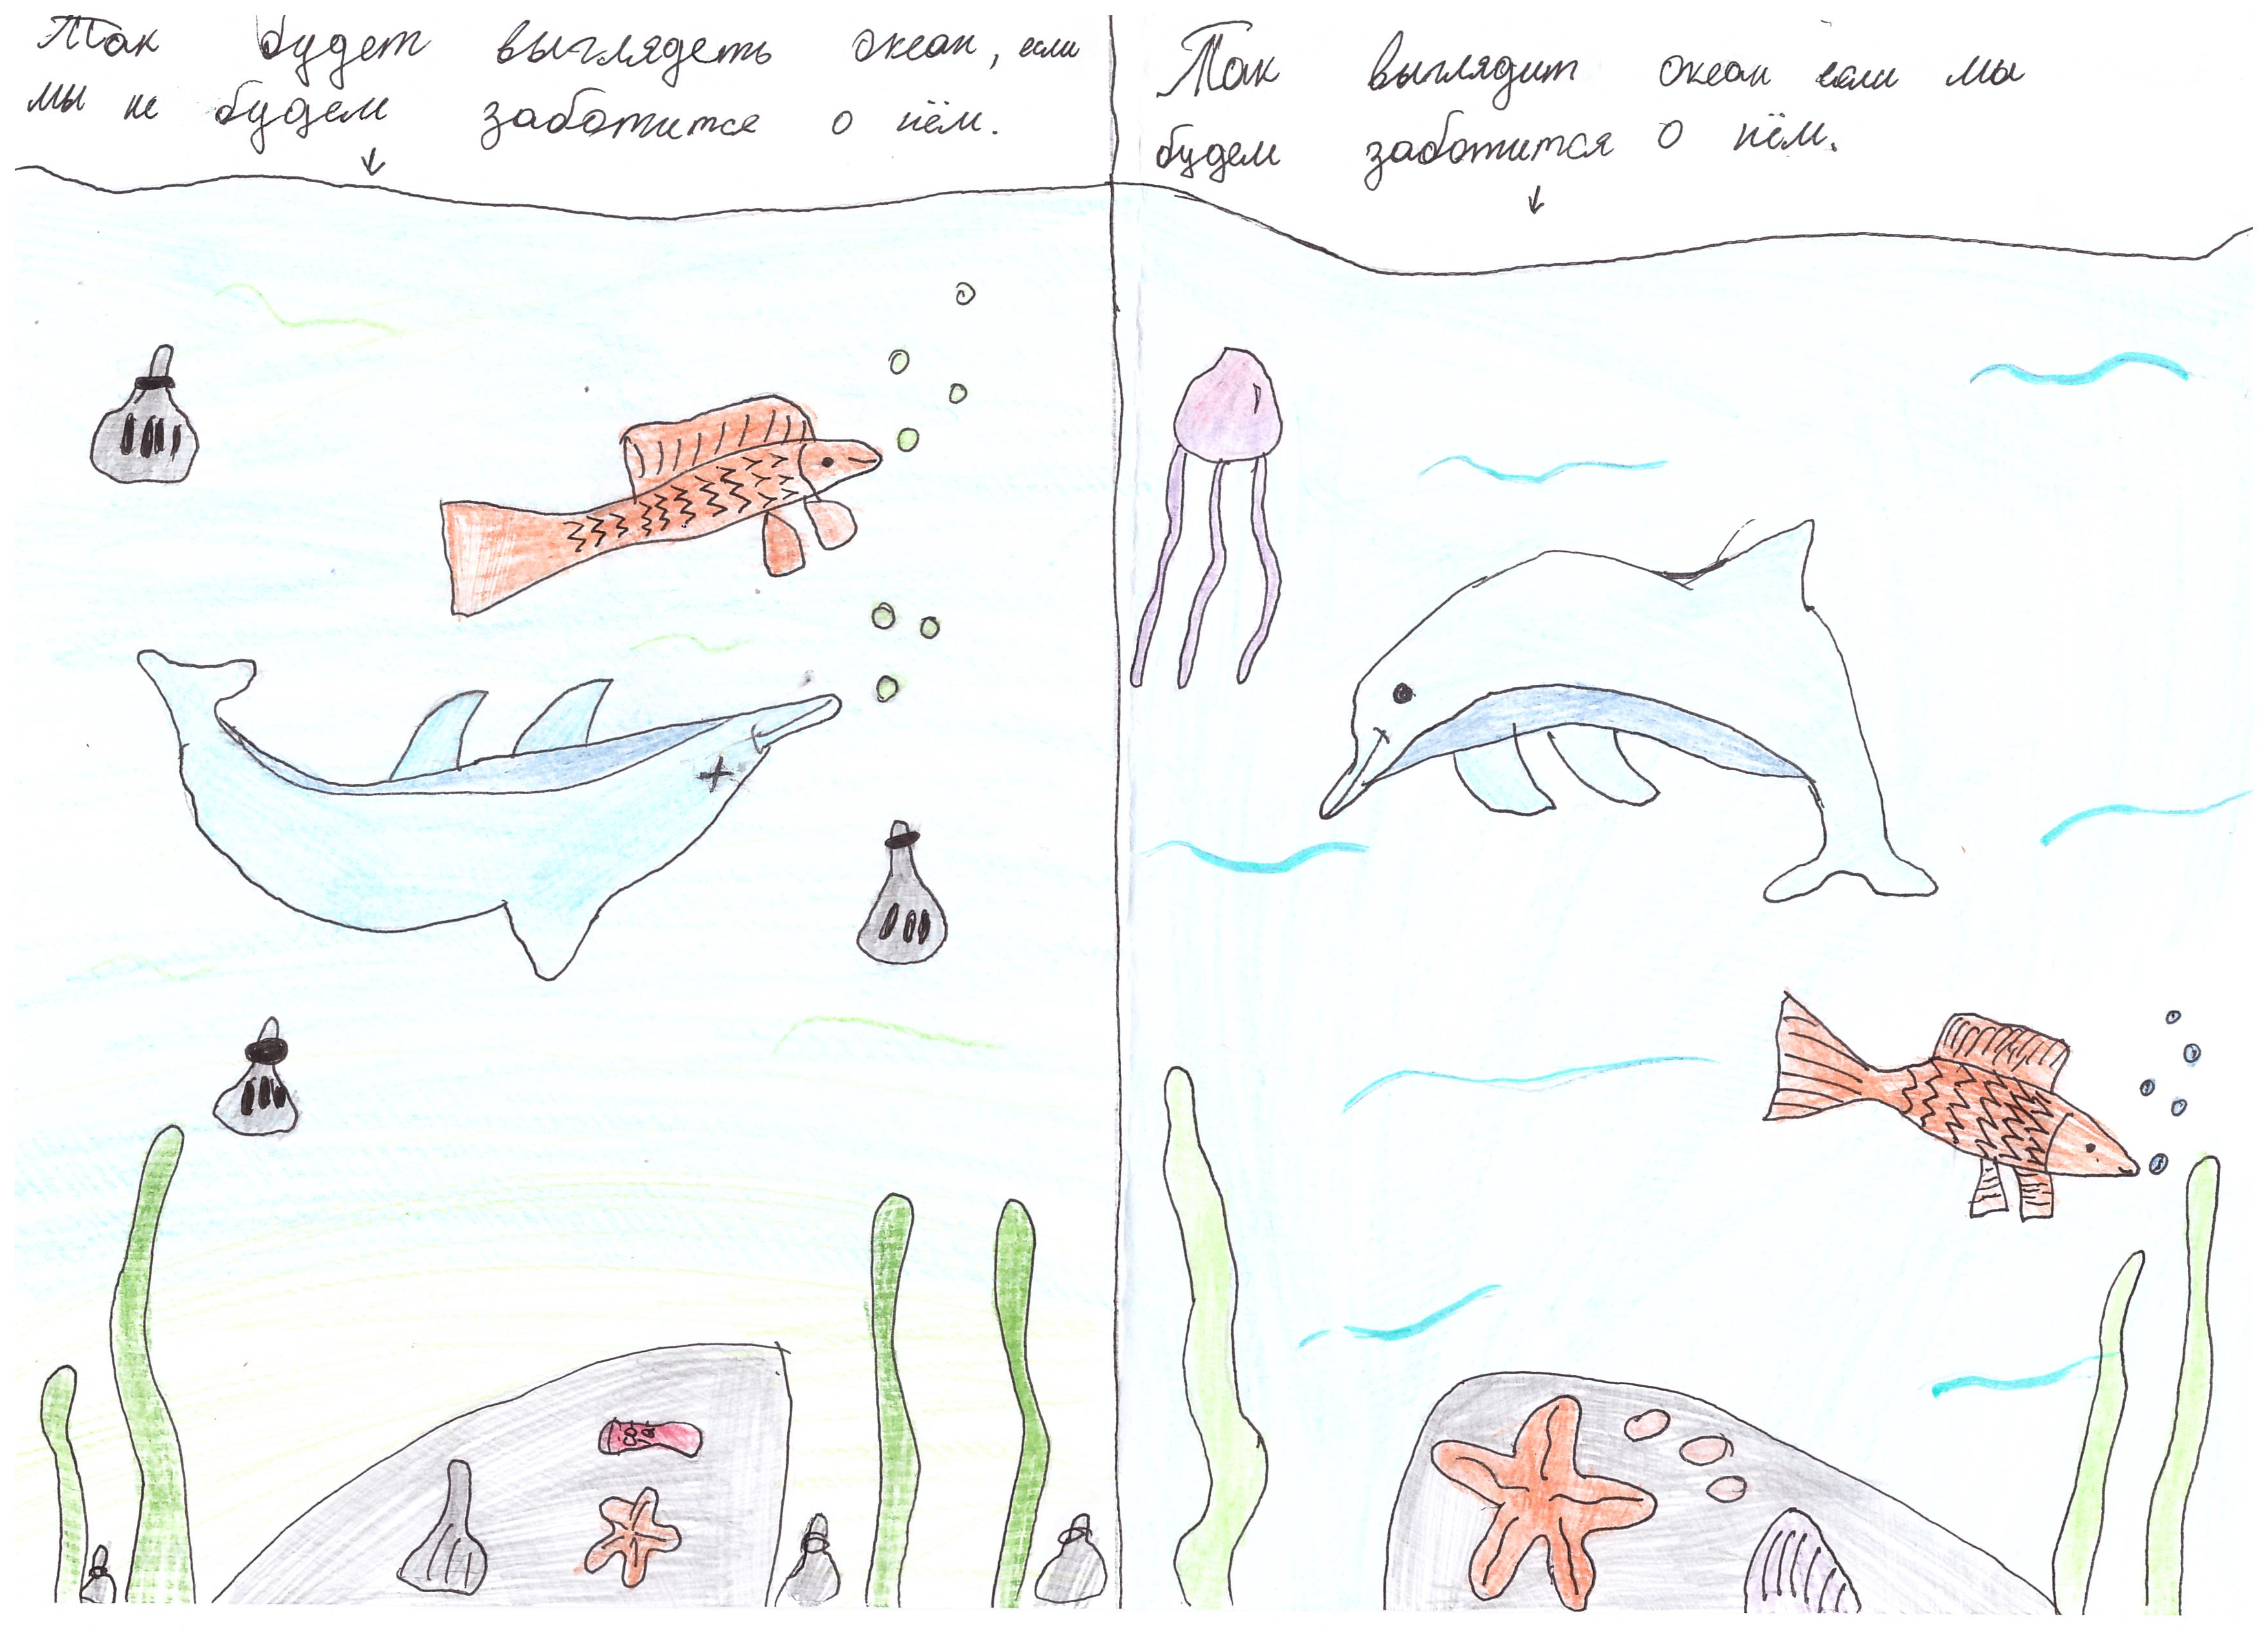 Так будет выглядеть океан, если
мы не будем заботится о нём.
Так выглядит океан если мы
будем заботится о нём.